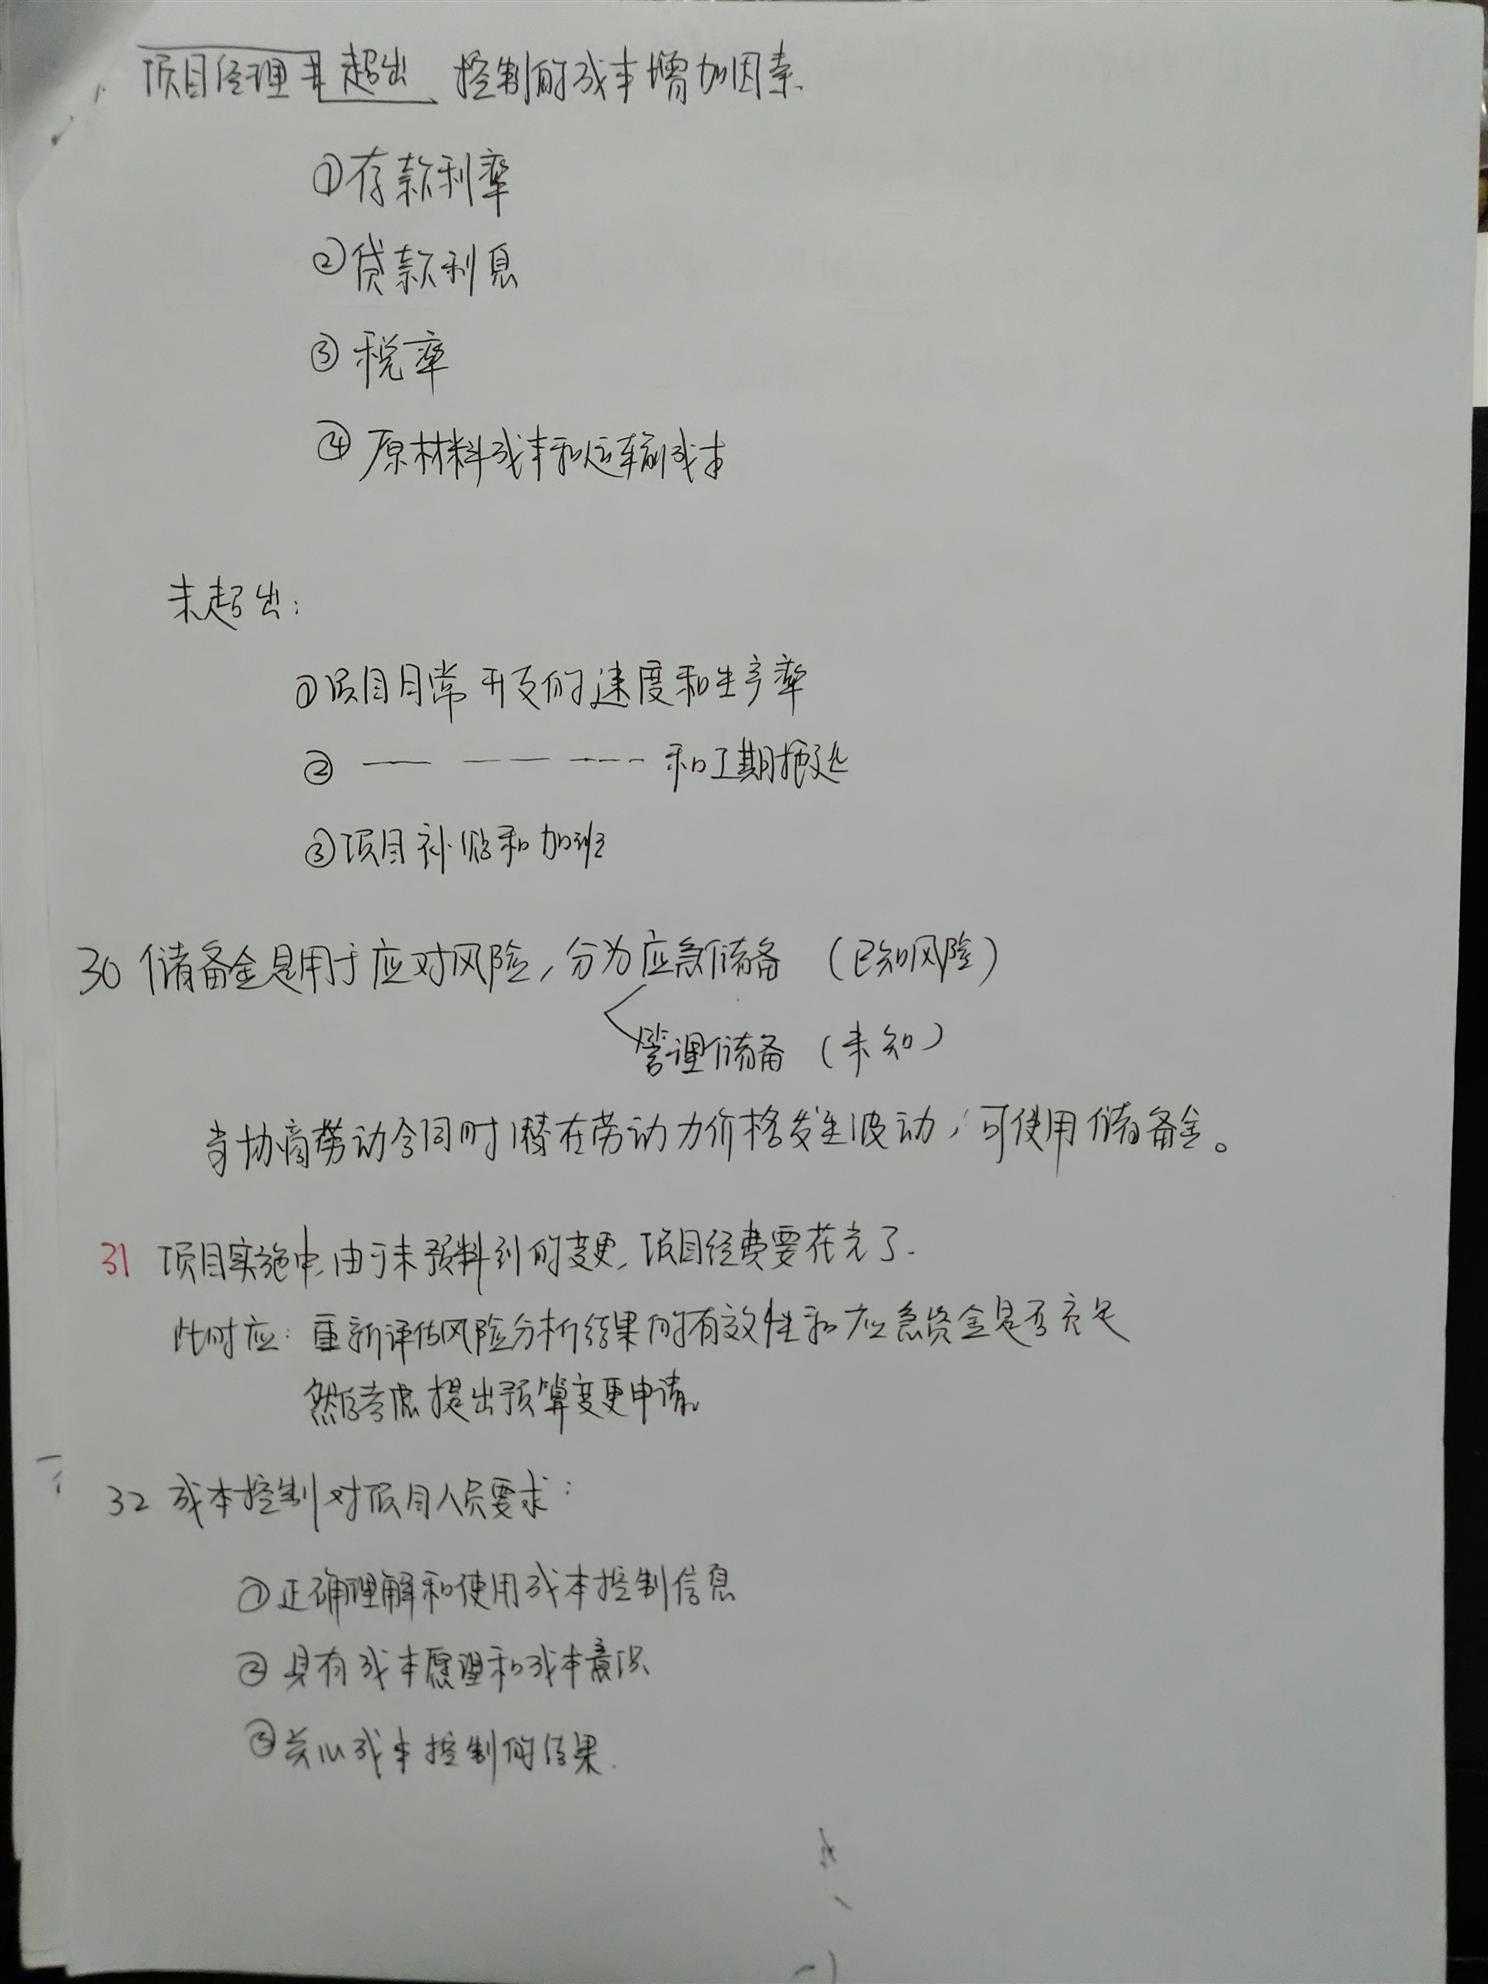 项目经理超出控制的成本增加因素.
①存款利率
②贷款利息
③税率
④原材料成本和运输成本
未超出:
①项目日常开支的速度和生产率
② —— —— ---- 和工期拖延
③项目补贴和加班
30 储备金是用于应对风险,分为应急储备 (已知风险)
管理储备 (未知)
当协商劳动合同时潜在劳动力价格发生波动,可使用储备金。
31 项目实施中,由于未预料到的变更,项目经费要花光了.
此时应: 重新评估风险分析结果的有效性和应急资金是否充足
然后考虑提出预算变更申请。
32 成本控制对项目人员要求:
①正确理解和使用成本控制信息
②具有成本愿望和成本意识
③关心成本控制的结果.